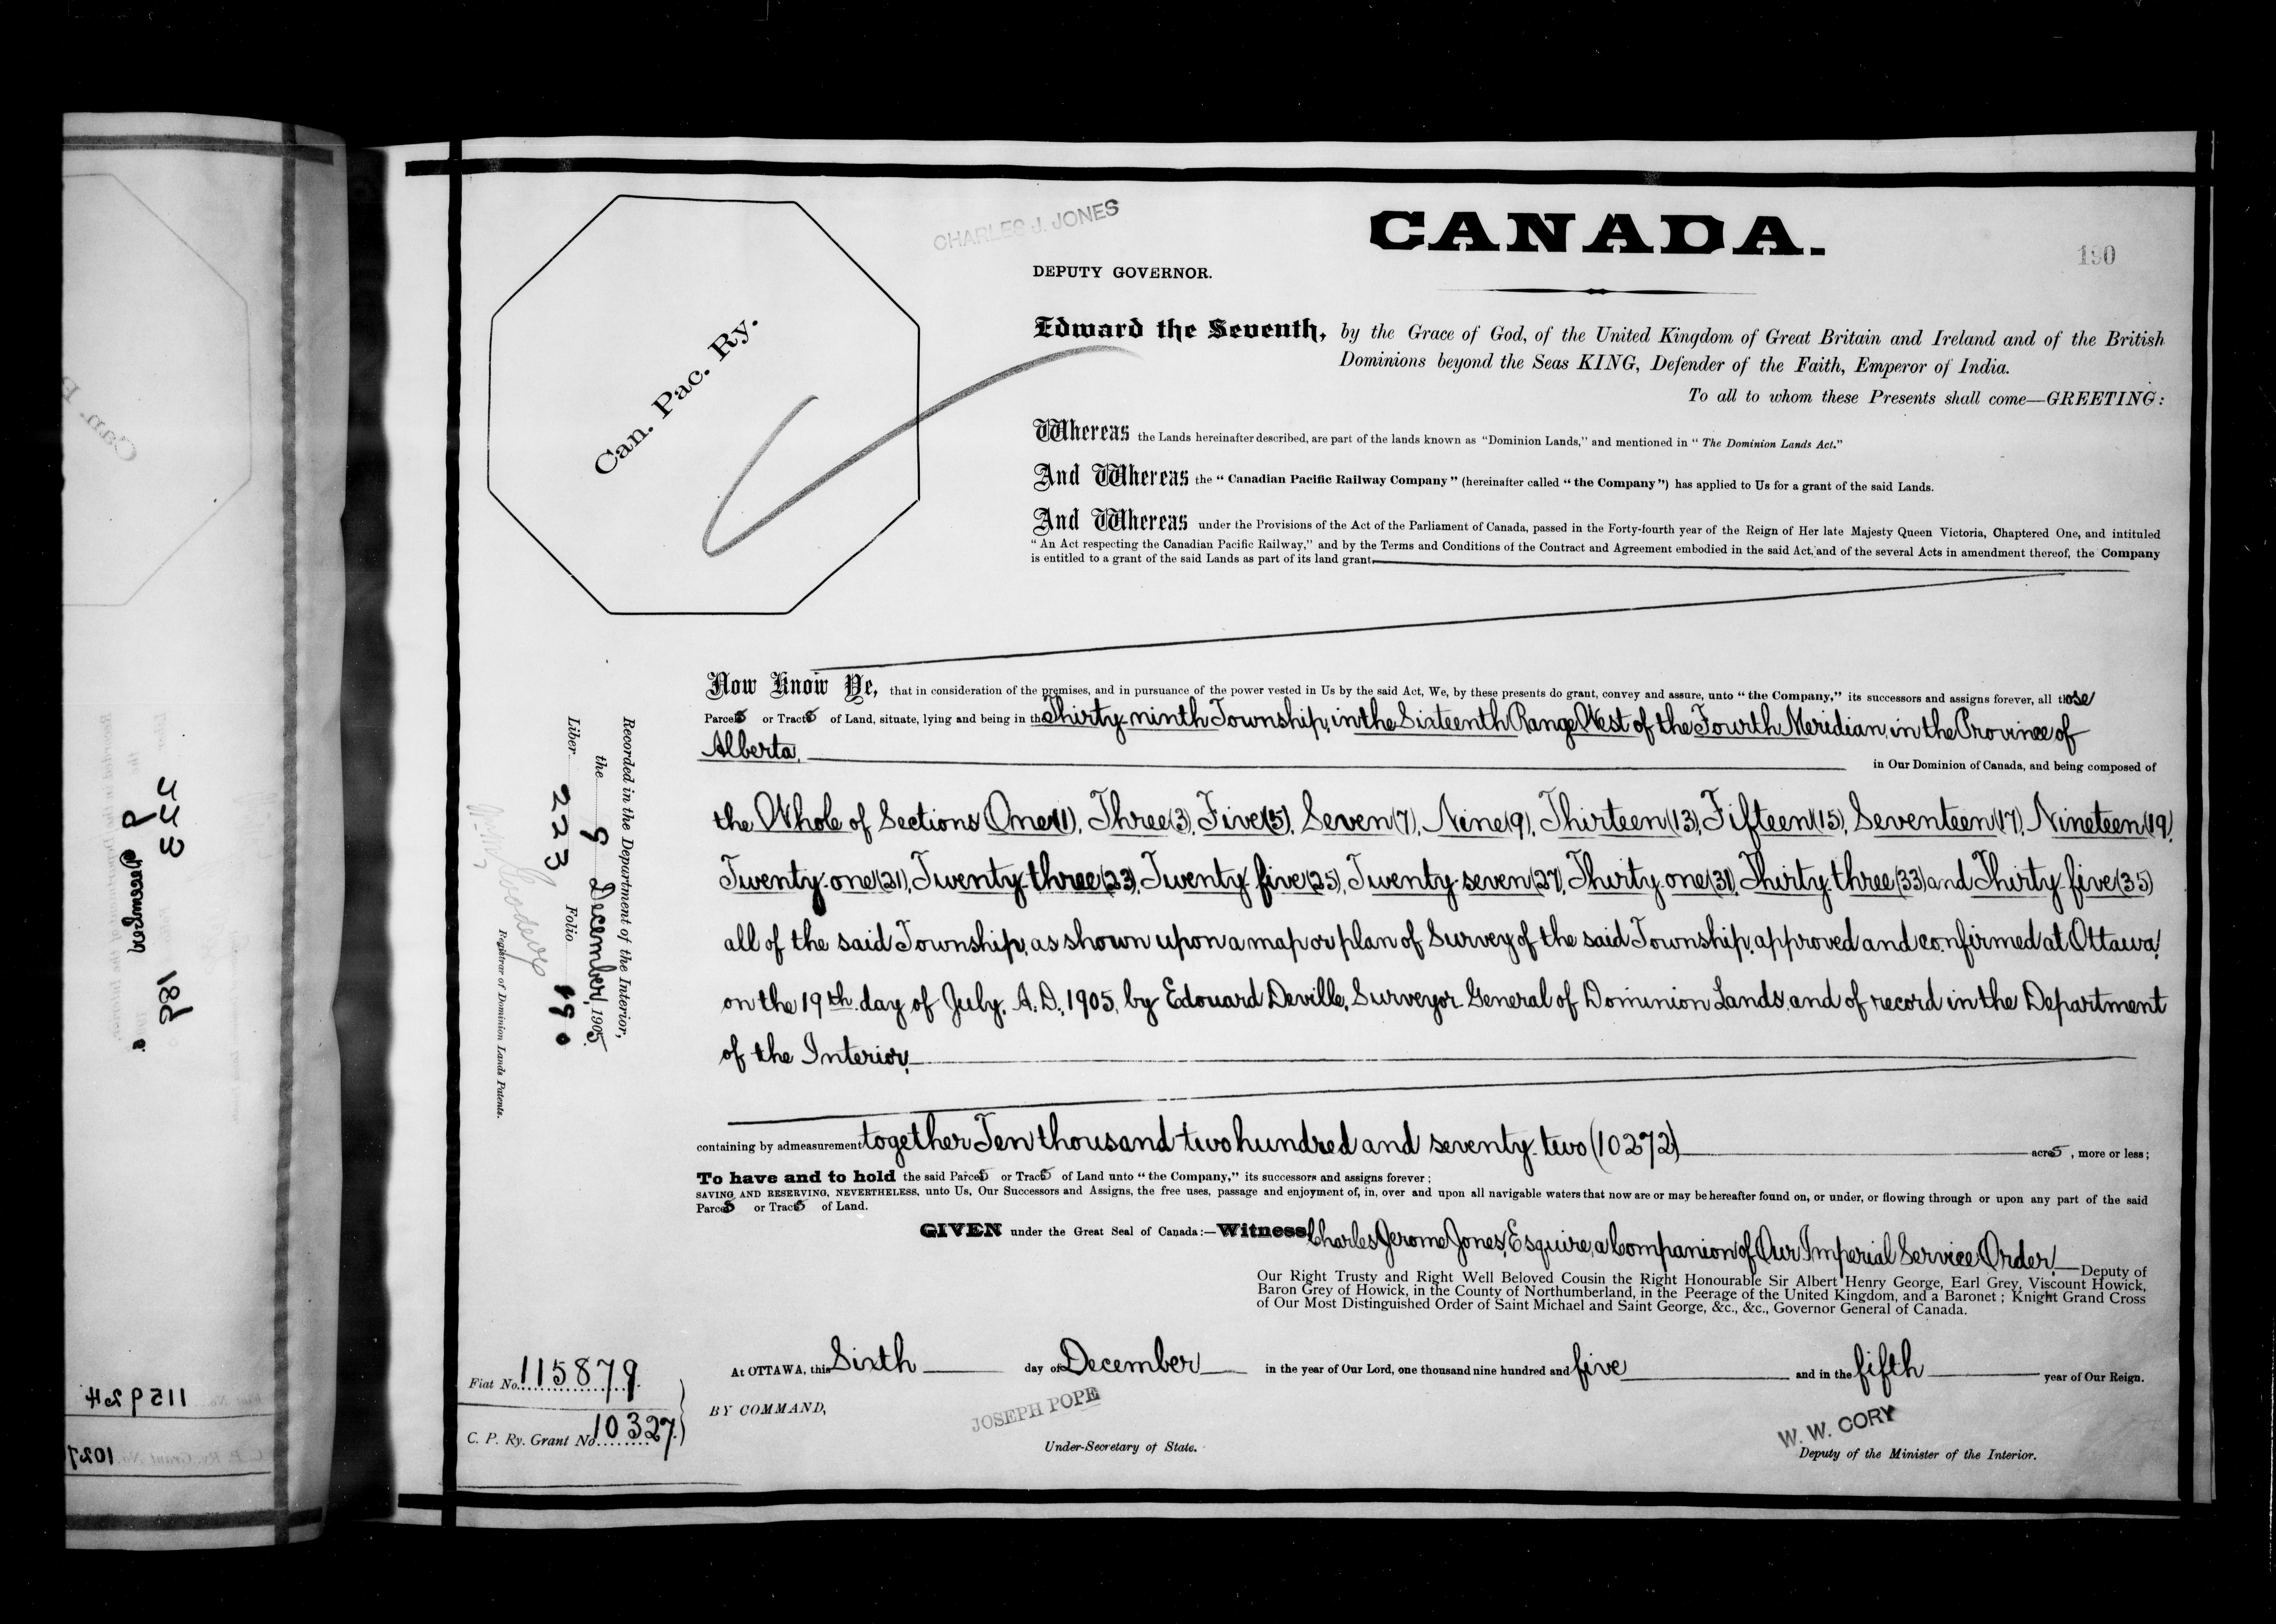 CHARLES J. JONES
CANADA.
190
DEPUTY GOVERNOR.
Can. Pac. Ry.
Edward the Seventh, by the Grace of God, of the United Kingdom of Great Britain and Ireland and of the British
Dominions beyond the Seas KING, Defender of the Faith, Emperor of India.
To all to whom these Presents shall come—GREETING:
Whereas the Lands hereinafter described, are part of the lands known as "Dominion Lands," and mentioned in "The Dominion Lands Act."
And Whereas the "Canadian Pacific Railway Company" (hereinafter called "the Company") has applied to Us for a grant of the said Lands.
And Whereas under the Provisions of the Act of the Parliament of Canada, passed in the Forty-fourth year of the Reign of Her late Majesty Queen Victoria, Chaptered One, and intituled
"An Act respecting the Canadian Pacific Railway," and by the Terms and Conditions of the Contract and Agreement embodied in the said Act, and of the several Acts in amendment thereof, the Company
is entitled to a grant of the said Lands as part of its land grant
Now Know Ye, that in consideration of the premises, and in pursuance of the power vested in Us by the said Act, We, by these presents do grant, convey and assure, unto "the Company," its successors and assigns forever, all those
Parcels or Tracts of Land, situate, lying and being in the Thirty-ninth Township, in the Sixteenth Range West of the Fourth Meridian, in the Province of
Alberta, in Our Dominion of Canada, and being composed of
the Whole of Sections One (1), Three (3), Five (5), Seven (7), Nine (9), Thirteen (13), Fifteen (15), Seventeen (17), Nineteen (19),
Twenty-one (21), Twenty-three (23), Twenty-five (25), Twenty-seven (27), Thirty-one (31), Thirty-three (33) and Thirty-five (35)
all of the said Township, as shown upon a map or plan of Survey of the said Township, approved and confirmed at Ottawa,
on the 19th day of July, A.D., 1905, by Edouard Deville, Surveyor General of Dominion Lands, and of record in the Department
of the Interior,
containing by admeasurement together Ten thousand two hundred and seventy-two (10272) acres, more or less;
To have and to hold the said Parcels or Tracts of Land unto "the Company," its successors and assigns forever;
SAVING AND RESERVING, NEVERTHELESS, unto Us, Our Successors and Assigns, the free uses, passage and enjoyment of, in, over and upon all navigable waters that now are or may be hereafter found on, or under, or flowing through or upon any part of the said
Parcels or Tracts of Land.
GIVEN under the Great Seal of Canada:—Witness Charles Jerome Jones, Esquire, a Companion of Our Imperial Service Order, Deputy of
Our Right Trusty and Right Well Beloved Cousin the Right Honourable Sir Albert Henry George, Earl Grey, Viscount Howick,
Baron Grey of Howick, in the County of Northumberland, in the Peerage of the United Kingdom, and a Baronet; Knight Grand Cross
of Our Most Distinguished Order of Saint Michael and Saint George, &c., &c., Governor General of Canada.
At OTTAWA, this Sixth day of December in the year of Our Lord, one thousand nine hundred and five and in the fifth year of Our Reign.
BY COMMAND,
JOSEPH POPE
Under-Secretary of State.
W. W. CORY
Deputy of the Minister of the Interior.
Recorded in the Department of the Interior,
the 9 December, 1905.
Liber 223 Folio 190
Registrar of Dominion Lands Patents.
Fiat No. 115879.
C. P. Ry. Grant No. 10327.